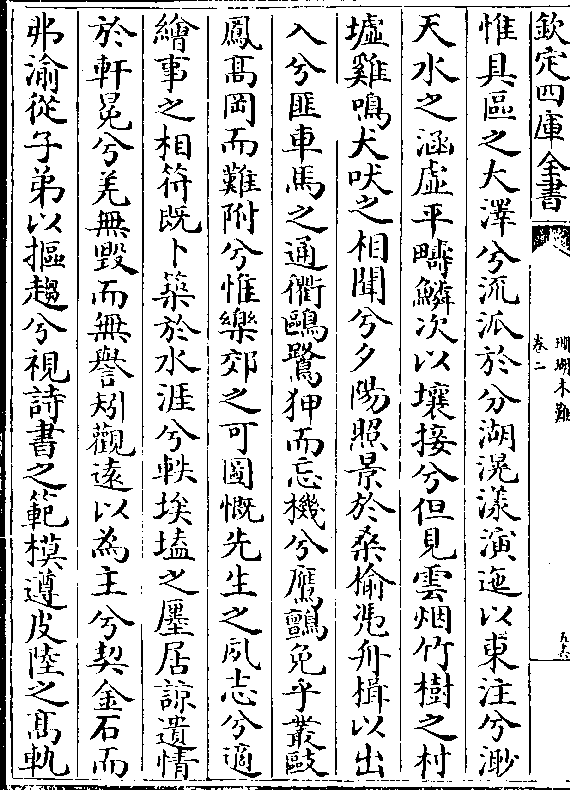 欽定四庫全書
珊瑚木難
卷二
惟具區之大澤兮流派於分湖滉漾演迤以東注兮渺
天水之涵虛平疇鱗次以壤接兮但見雲烟竹樹之村
墟雞鳴犬吠之相聞兮夕陽照景於桑榆憑舟楫以出
入兮匪車馬之通衢鷗鷺狎而忘機兮鷹鸇免乎叢毆
鳳髙岡而難附兮惟樂郊之可圖慨先生之夙志兮適
繪事之相符既卜築於水涯兮軼埃壒之廛居諒遺情
於軒冕兮羌無毀而無譽矧觀遠以為主兮契金石而
弗渝從子弟以摳趨兮視詩書之範模遵皮陸之髙軌